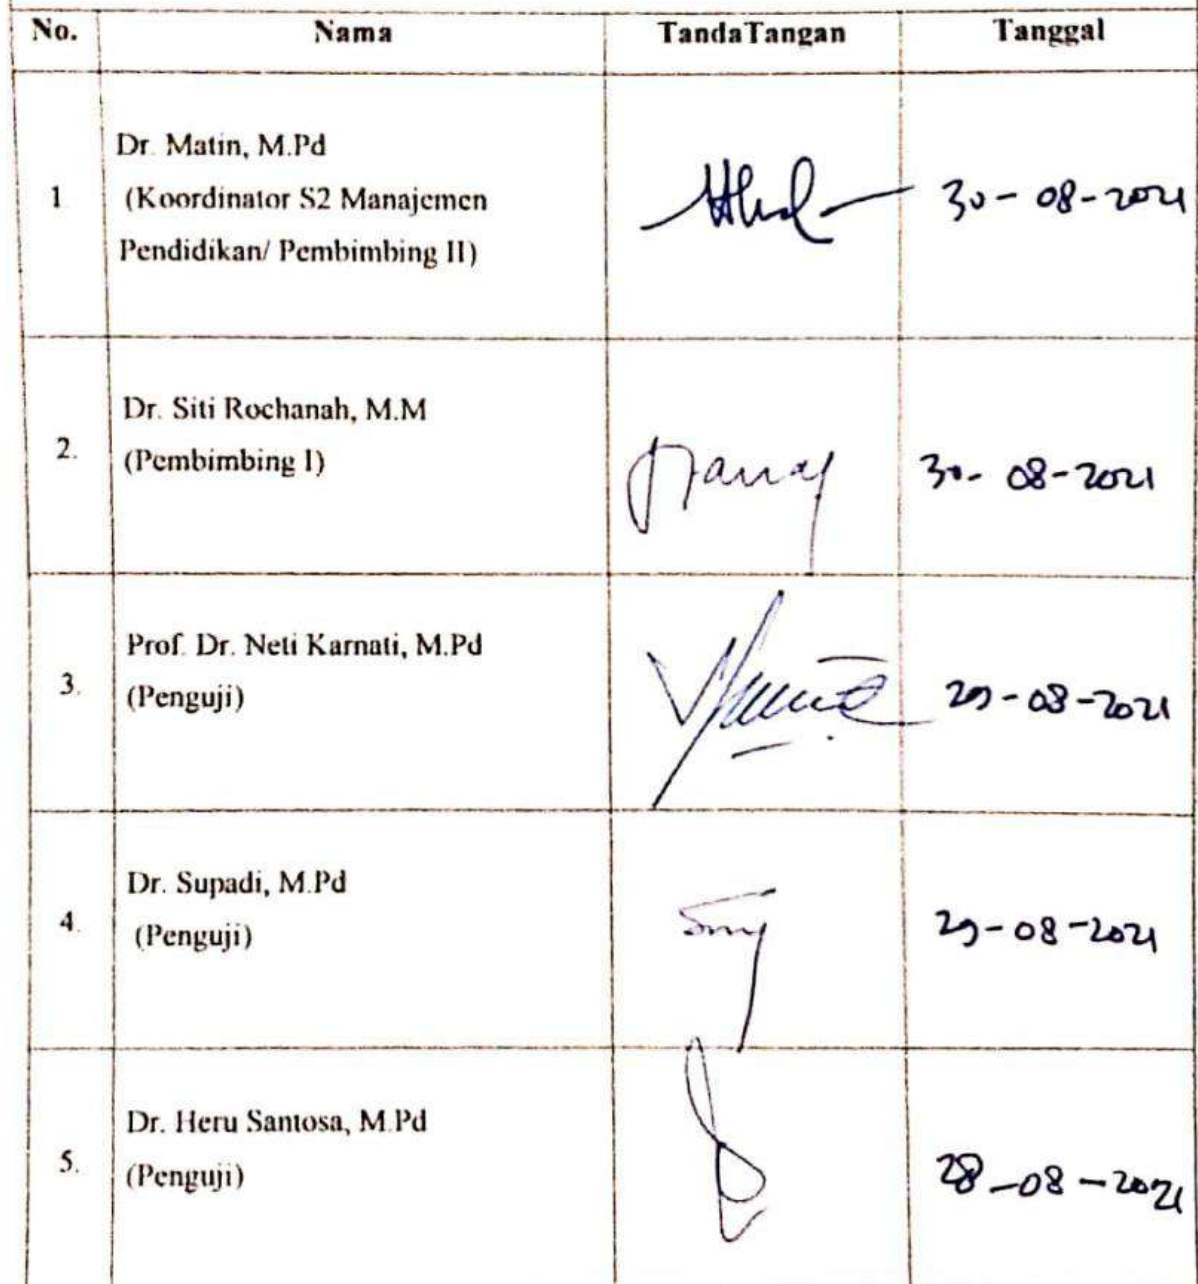 No. Nama TandaTangan Tanggal
Dr. Matin, M.Pd
1 (Koordinator S2 Manajemen 30-08-2021
Pendidikan/ Pembimbing II)
Dr. Siti Rochanah, M.M
2. (Pembimbing I) 30-08-2021
Prof. Dr. Neti Karnati, M.Pd
3. (Penguji) 29-08-2021
Dr. Supadi, M.Pd
4. (Penguji) 29-08-2021
Dr. Heru Santosa, M.Pd
5. (Penguji) 28-08-2021